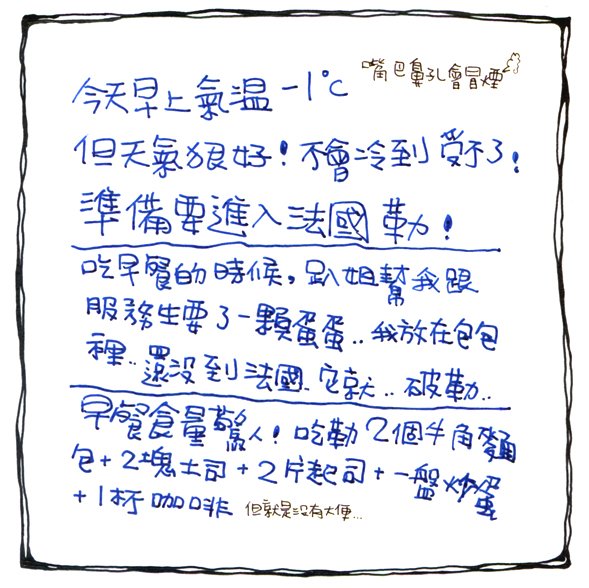 嘴巴鼻孔會冒煙
今天早上氣溫 -1°C
但天氣狠好！不會冷到受不了！
準備要進入法國勒！
吃早餐的時候，趴姐幫我跟
服務生要了一顆蛋蛋..我放在包包
裡..還沒到法國..它就..破勒..
早餐食量驚人！吃勒2個牛角麵
包+2塊土司+2片起司+一盤炒蛋
+1杯咖啡 但就是沒有大便...